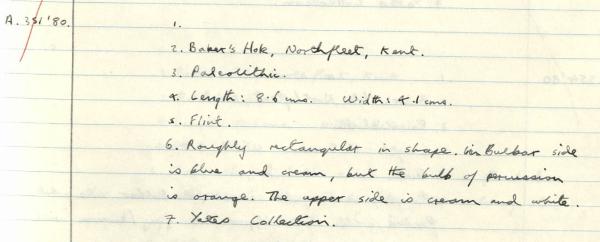 A. 351'80.
1.
2. Baker's Hole, Northfleet, Kent.
3. Paleolithic.
4. Length: 8.6 cms. Width: 4.1 cms.
5. Flint.
6. Roughly rectangular in shape. Bulbar side
is blue and cream, but the bulb of percussion
is orange. The upper side is cream and white.
7. Yates Collection.